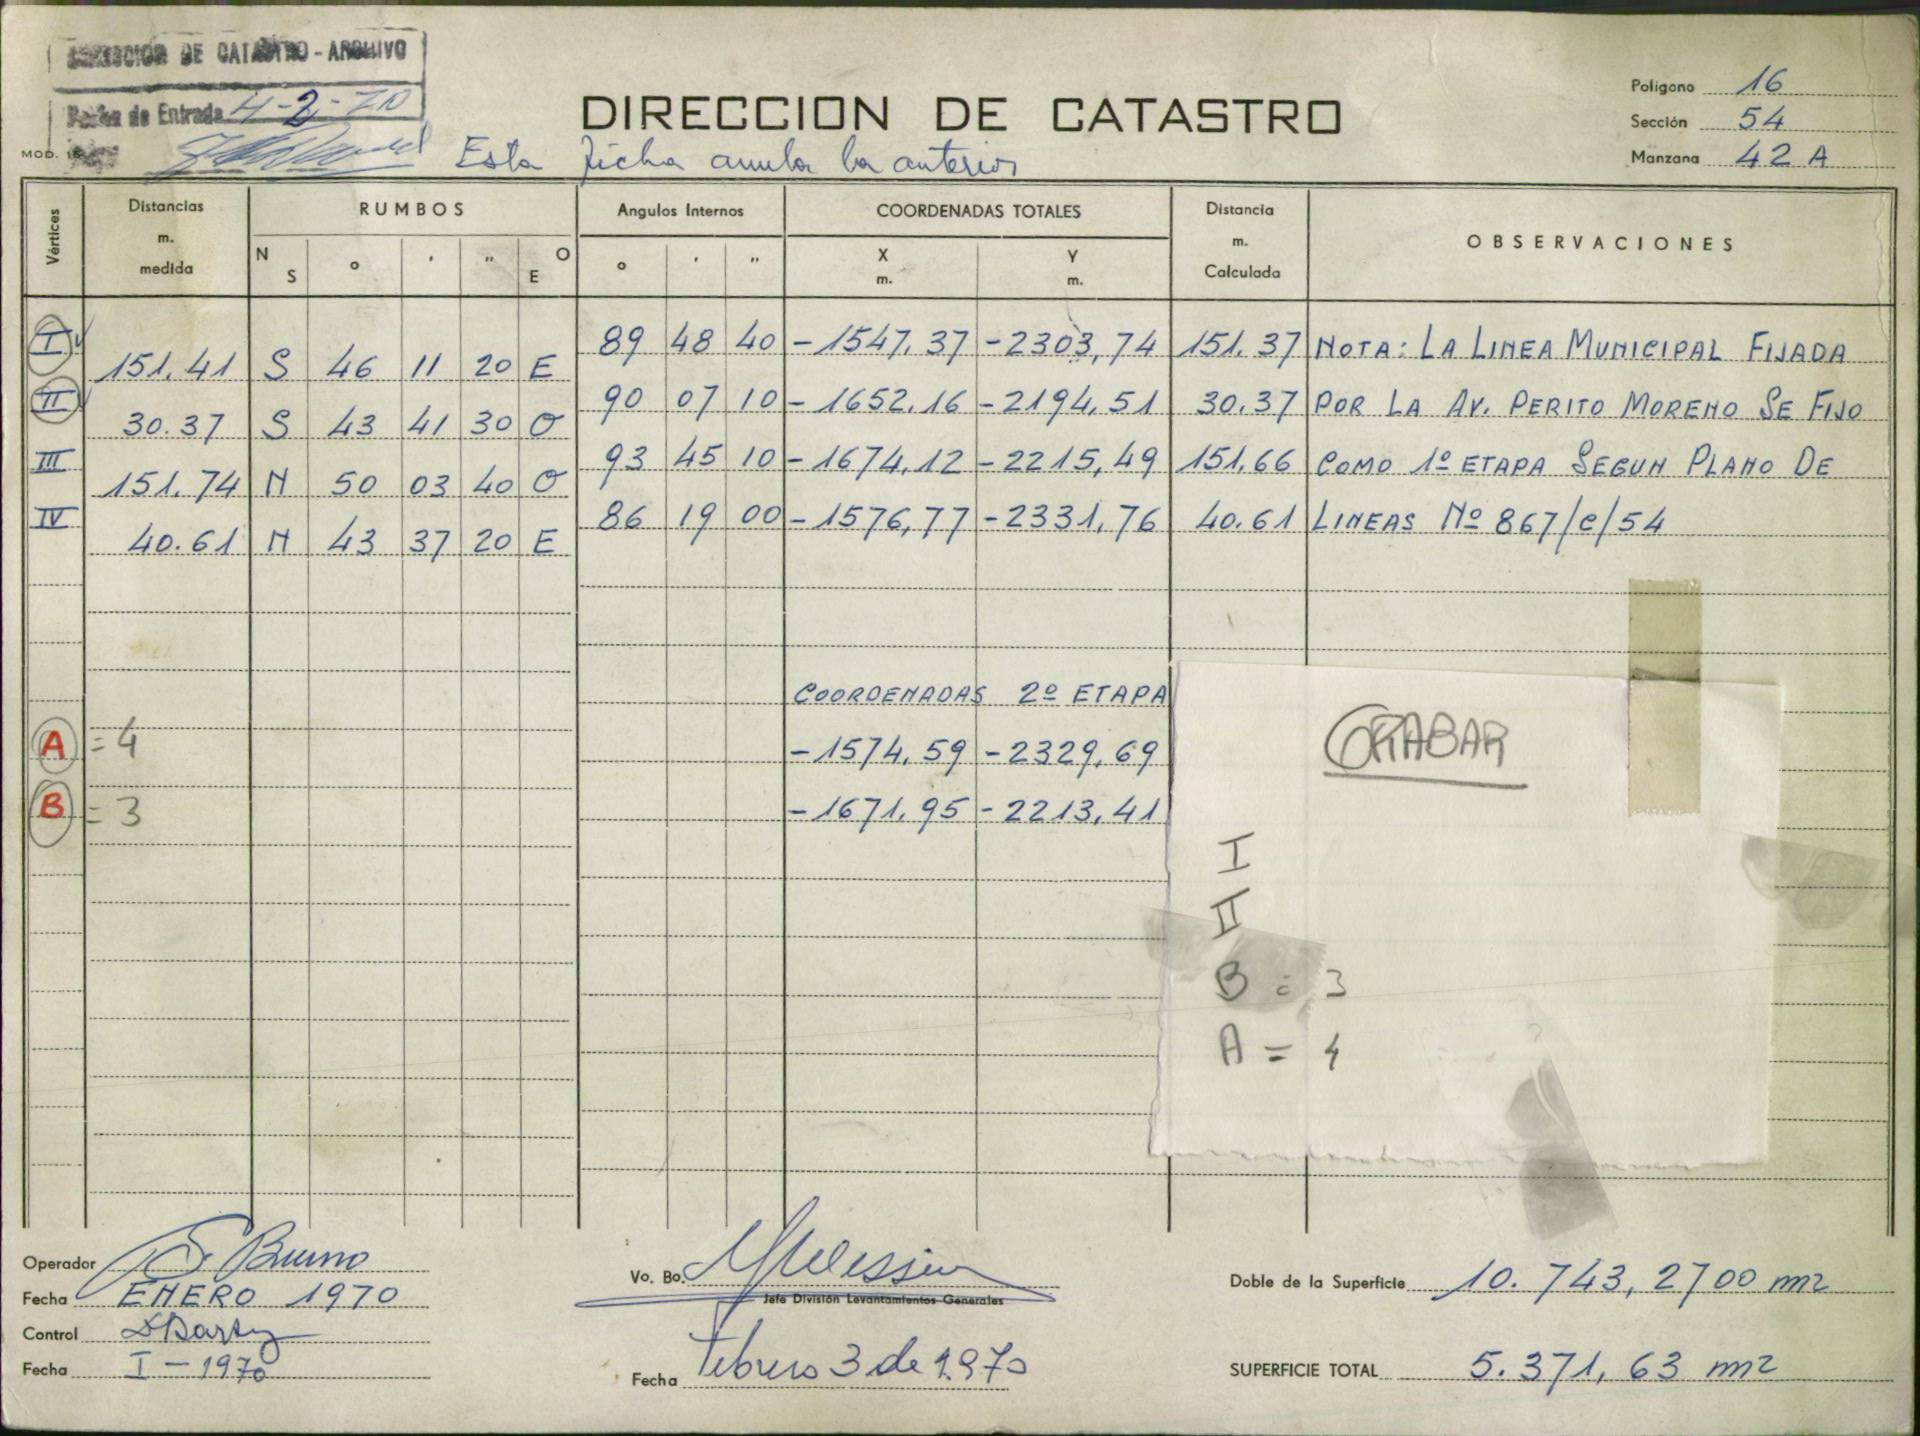 DIRECCION DE CATASTRO - ARCHIVO
Fecha de Entrada 4-2-70
MOD.
DIRECCION DE CATASTRO
Esta ficha anula la anterior
Poligono 16
Sección 54
Manzana 42 A
Vértices
Distancias m. medida
RUMBOS
N S ° ' " O E
Angulos Internos
° ' "
COORDENADAS TOTALES
X m. Y m.
Distancia m. Calculada
OBSERVACIONES
I 89 48 40 -1547,37 -2303,74 151.37 NOTA: LA LINEA MUNICIPAL FIJADA
151.41 S 46 11 20 E
II 90 07 10 -1652,16 -2194,51 30.37 POR LA AV. PERITO MORENO SE FIJO
30.37 S 43 41 30 O
III 93 45 10 -1674,12 -2215,49 151.66 COMO 1º ETAPA SEGUN PLANO DE
151.74 N 50 03 40 O
IV 86 19 00 -1576,77 -2331,76 40.61 LINEAS Nº 867/C/54
40.61 N 43 37 20 E
COORDENADAS 2º ETAPA
A = 4 -1574,59 -2329,69
B = 3 -1671,95 -2213,41
GRABAR
I
II
B = 3
A = 4
Operador S. Bruno
Fecha ENERO 1970
Control
Fecha I - 1970
Vo. Bo.
Jefe División Levantamientos Generales
Fecha Febrero 3 de 1970
Doble de la Superficie 10.743,2700 m2
SUPERFICIE TOTAL 5.371,63 m2